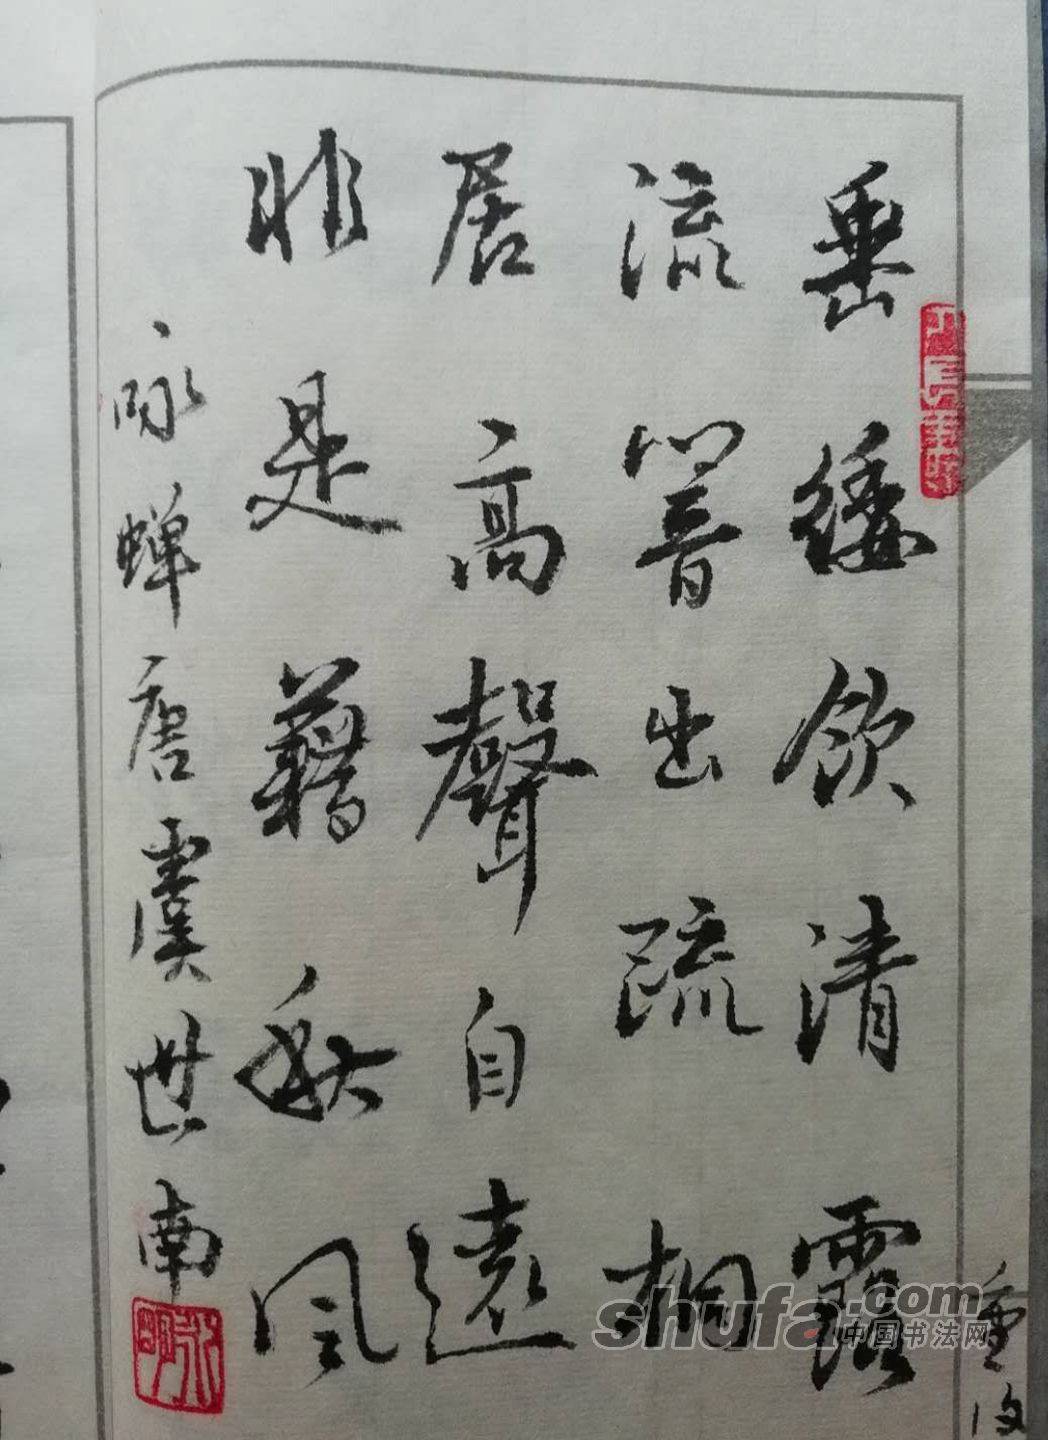 垂緌飲清露
流響出疏桐
居高聲自遠
非是藉秋風
咏蝉唐虞世南
shufa.com
中国书法网